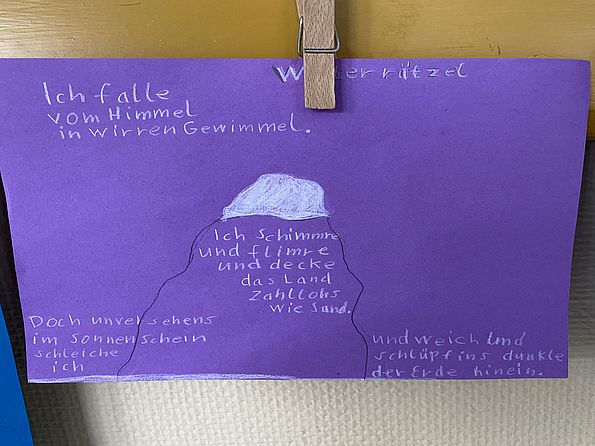 W  terrätzel
Ich falle
vom Himmel
in wirren Gewimmel.
Ich Schimmre
und flimre
und decke
das Land
Zahllohs
wie Sand.
Doch unversehens
im Sonnenschein
schleiche
ich
und weich und
schlüpf ins dunkle
der Erde hinein.